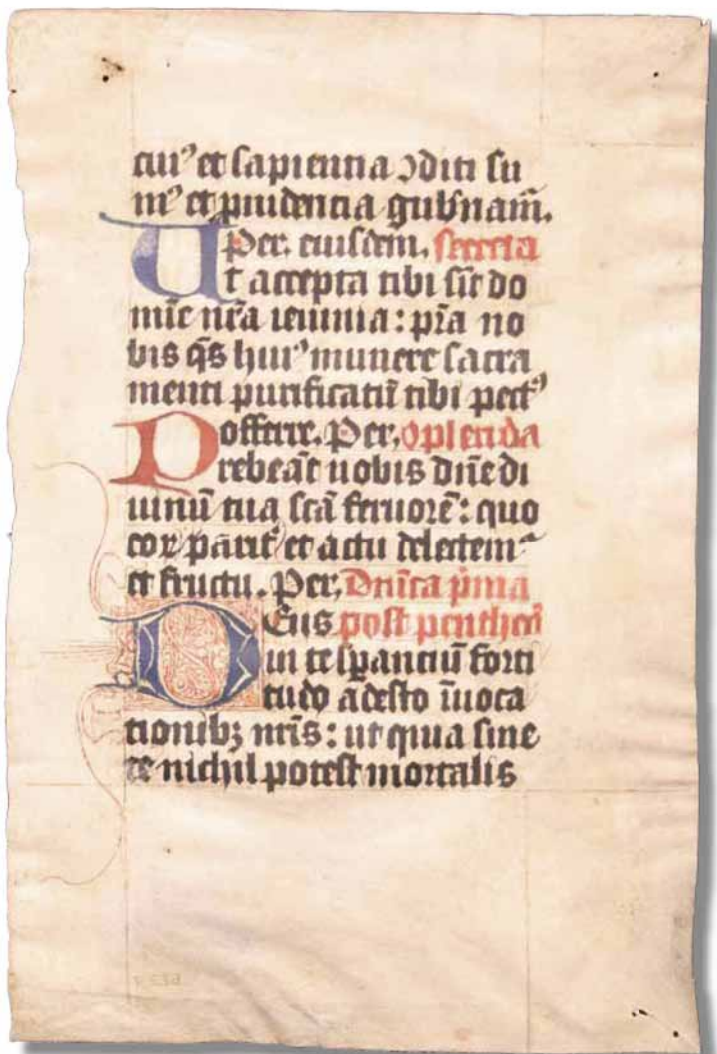 cui⁹ et sapientia ↄditi su
m⁹ et prudencia gub̾nam̄.
Per. eiusdem. secreta
Ut accepta tibi sīt do
mīe nr̄a ieiunia: p̄ta no
bis q̄s hui⁹ munere sacra
menti purificatū tibi pect⁹
offerre. Per. ↄplenda
Prebeāt nobis dn̄e di
uinū tua sc̄a feruorē: quo
eoꝝ parit̾ et actu delectem᷑
et fructu. Per. Dn̄ica p̄ma
Deus post penthec̄
in te sꝑantiū forti
tudo adesto īuoca
tionibꝫ nr̄is: ut quia sine
te nichil potest mortalis